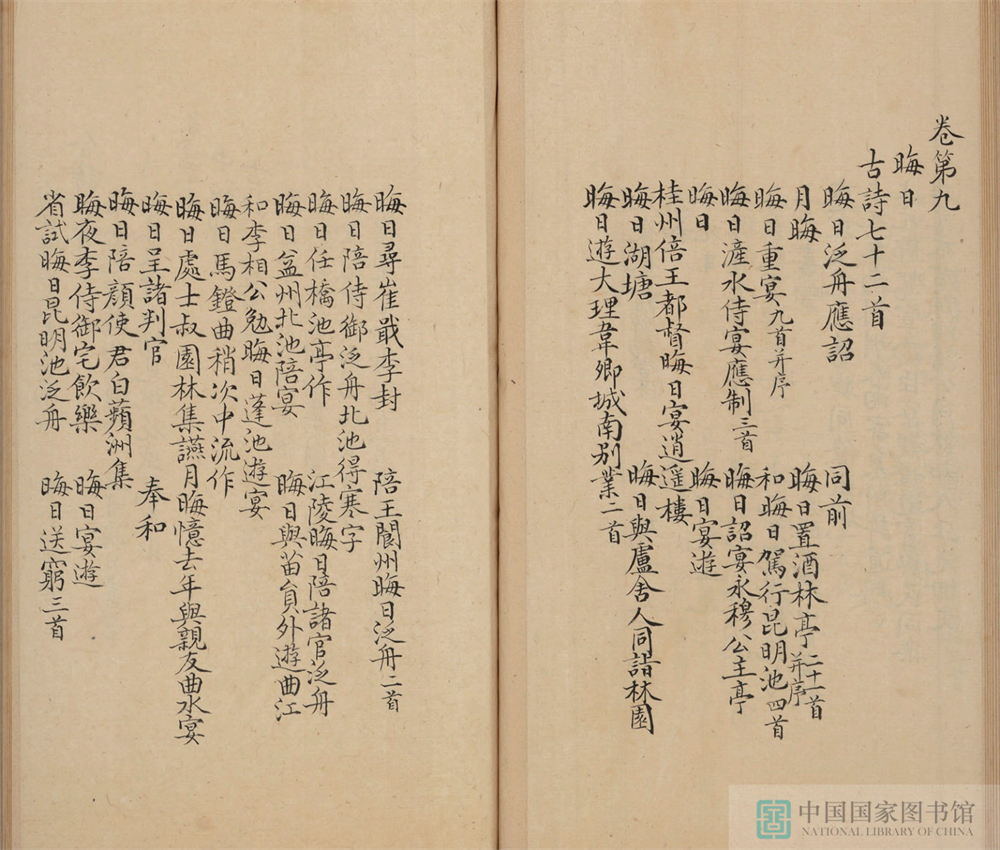 卷第九
晦日
古詩七十二首
晦日泛舟應詔 同前
月晦 晦日置酒林亭二十一首并序
晦日重宴九首并序 和晦日駕行昆明池四首
晦日滻水侍宴應制三首 晦日詔宴永穆公主亭
晦日 晦日宴遊
桂州陪王都督晦日宴逍遥樓
晦日湖塘 晦日與盧舍人同詣林園
晦日遊大理韋卿城南别業二首
晦日尋崔戢李封 陪王閬州晦日泛舟二首
晦日陪侍御泛舟北池得寒字
晦日任橋池亭作 江陵晦日陪諸官泛舟
晦日益州北池陪宴 晦日與苗員外遊曲江
和李相公勉晦日蓬池遊宴
晦日馬鐙曲稍次中流作
晦日處士叔園林集讌 月晦憶去年與親友曲水宴
晦日呈諸判官 奉和
晦日陪顔使君白蘋洲集
晦夜李侍御宅飲樂 晦日宴遊
省試晦日昆明池泛舟 晦日送窮三首
中国国家图书馆
NATIONAL LIBRARY OF CHINA